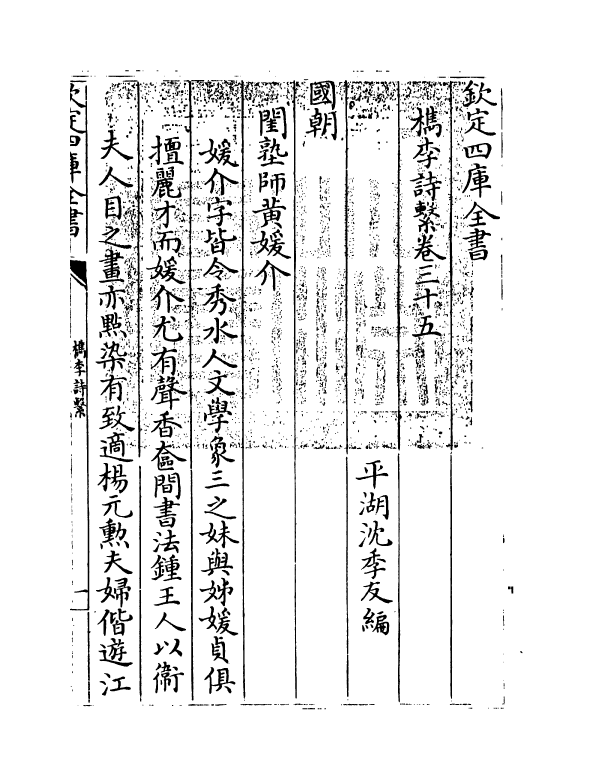 欽定四庫全書
檇李詩繫卷三十五
平湖沈季友編
國朝
閨塾師黄媛介
媛介字皆令秀水人文學象三之妹與姊媛貞俱
擅麗才而媛介尤有聲香奩間書法鍾王人以衛
夫人目之畫亦㸃染有致適楊元勲夫婦偕遊江
欽定四庫全書
檇李詩繫
一